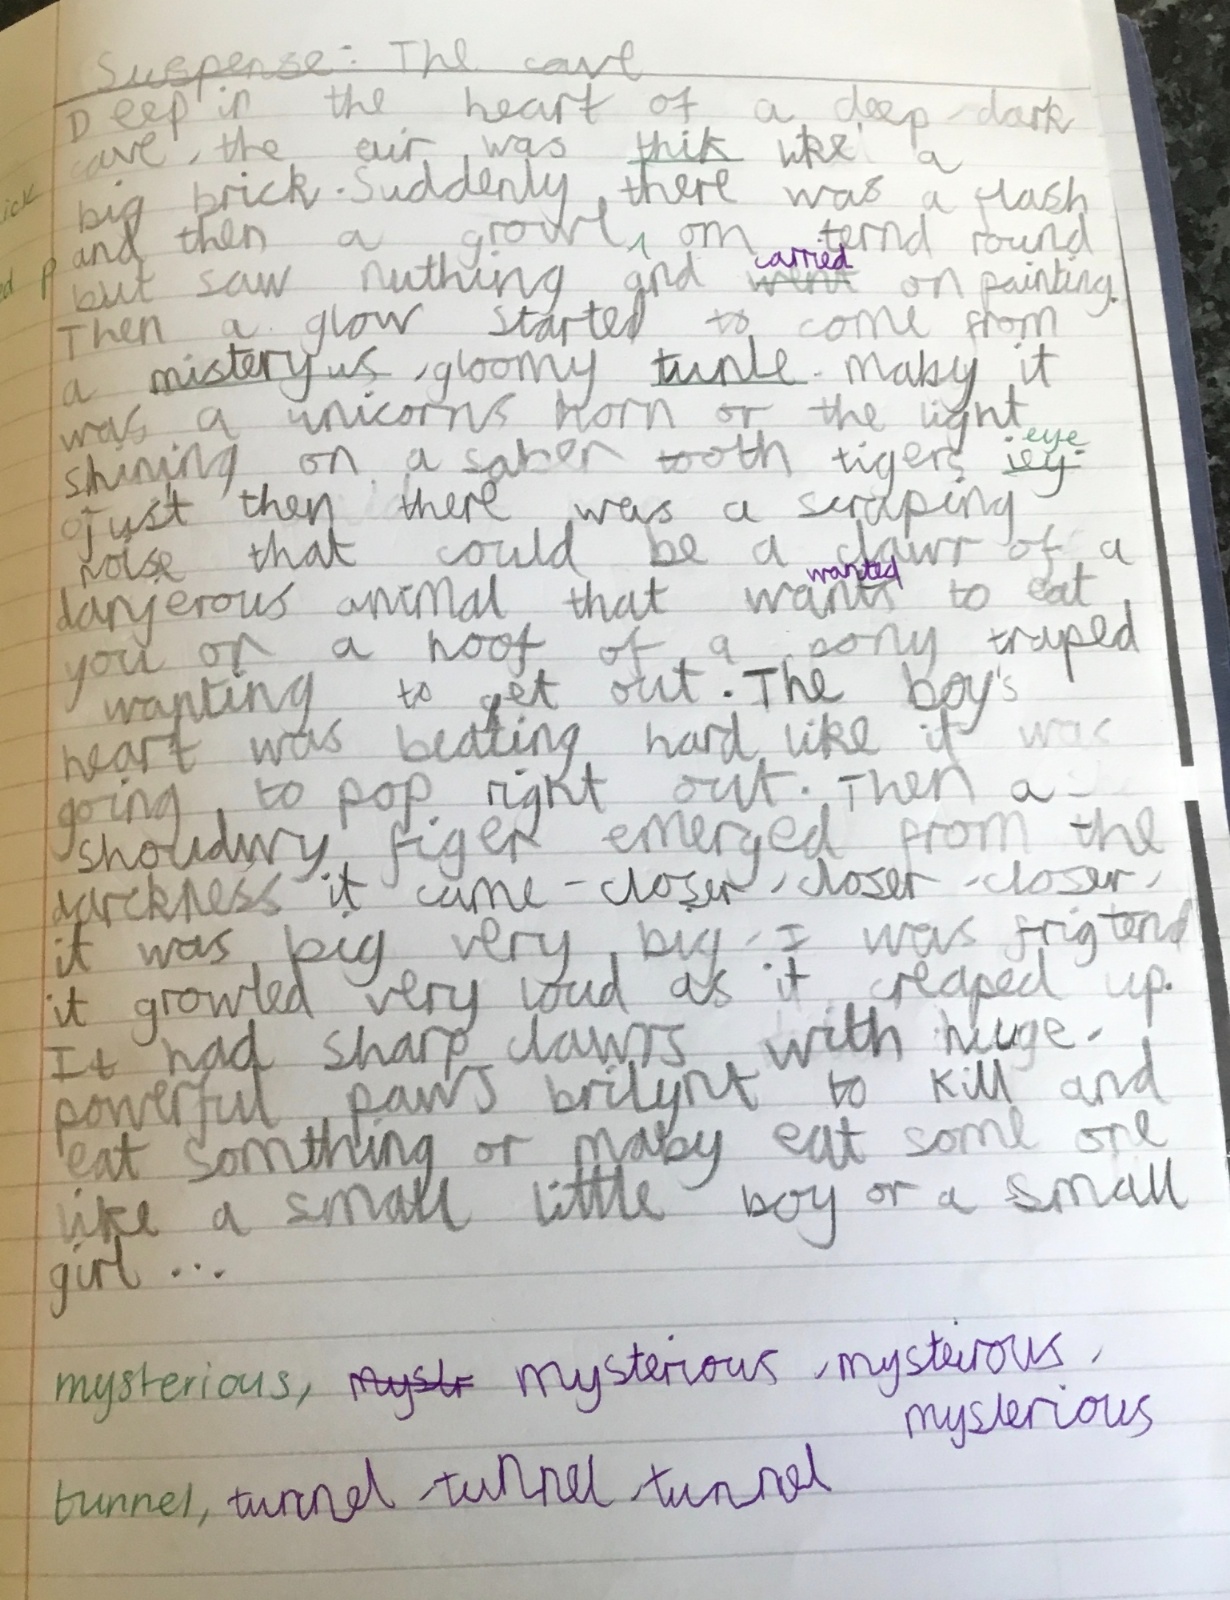 Suspense: The cave
Deep in the heart of a deep, dark
cave, the eair was thik like a
big brick. Suddenly there was a flash
and then a growl, om ternd round
carried
but saw nuthing and went on painting.
Then a glow started to come from
a misteryus, gloomy tunle. Maby it
was a unicorns horn or the light
eye
shining on a saber tooth tigers iey.
Just then there was a scraping
noise that could be a clawr of a
wanted
dangerous animal that wants to eat
you or a hoof of a pony traped
wanting to get out. The boy's
heart was beating hard like it was
going to pop right out. Then a
shoudwy figer emerged from the
darckness it came - closer, closer, closer,
it was big very big, I was frigtend
it growled very loud as it creaped up.
It had sharp clawrs with huge,
powerful paws brilynt to kill and
eat somthing or maby eat some one
like a small little boy or a small
girl ...
mysterious, mystr mysterious, mysteirous,
mysterious
tunnel, tunnel, tunnel, tunnel
ick
ed p